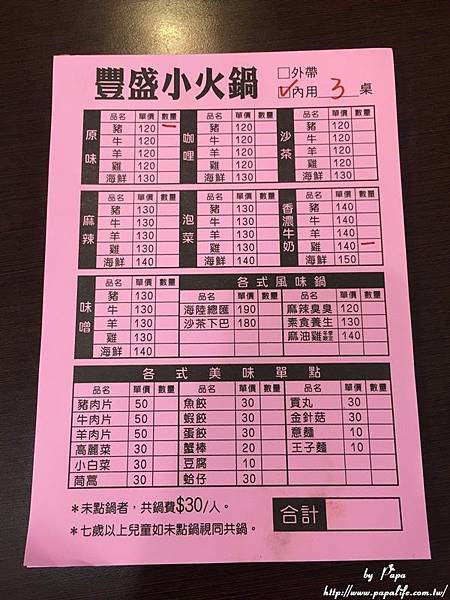 豐盛小火鍋 □外帶
☑內用 3 桌
原味 品名 單價 數量 咖哩 品名 單價 數量 沙茶 品名 單價 數量
豬 120 一 豬 120 豬 120
牛 120 牛 120 牛 120
羊 120 羊 120 羊 120
雞 120 雞 120 雞 120
海鮮 130 海鮮 130 海鮮 130
麻辣 品名 單價 數量 泡菜 品名 單價 數量 香濃牛奶 品名 單價 數量
豬 130 豬 130 豬 140
牛 130 牛 130 牛 140
羊 130 羊 130 羊 140
雞 130 雞 130 雞 140 一
海鮮 140 海鮮 140 海鮮 150
味噌 品名 單價 數量 各式風味鍋
豬 130 品名 單價 數量 品名 單價 數量
牛 130 海陸總匯 190 麻辣臭臭 120
羊 130 沙茶下巴 180 素食養生 130
雞 130 麻油雞 140
海鮮 140
各式美味單點
品名 單價 數量 品名 單價 數量 品名 單價 數量
豬肉片 50 魚餃 30 貢丸 30
牛肉片 50 蝦餃 30 金針菇 30
羊肉片 50 蛋餃 30 意麵 10
高麗菜 30 蟹棒 20 王子麵 10
小白菜 30 豆腐 10
茼蒿 30 蛤仔 30
*未點鍋者,共鍋費$30/人。
*七歲以上兒童如未點鍋視同共鍋。
合計
by Papa
http://www.papalife.com.tw/